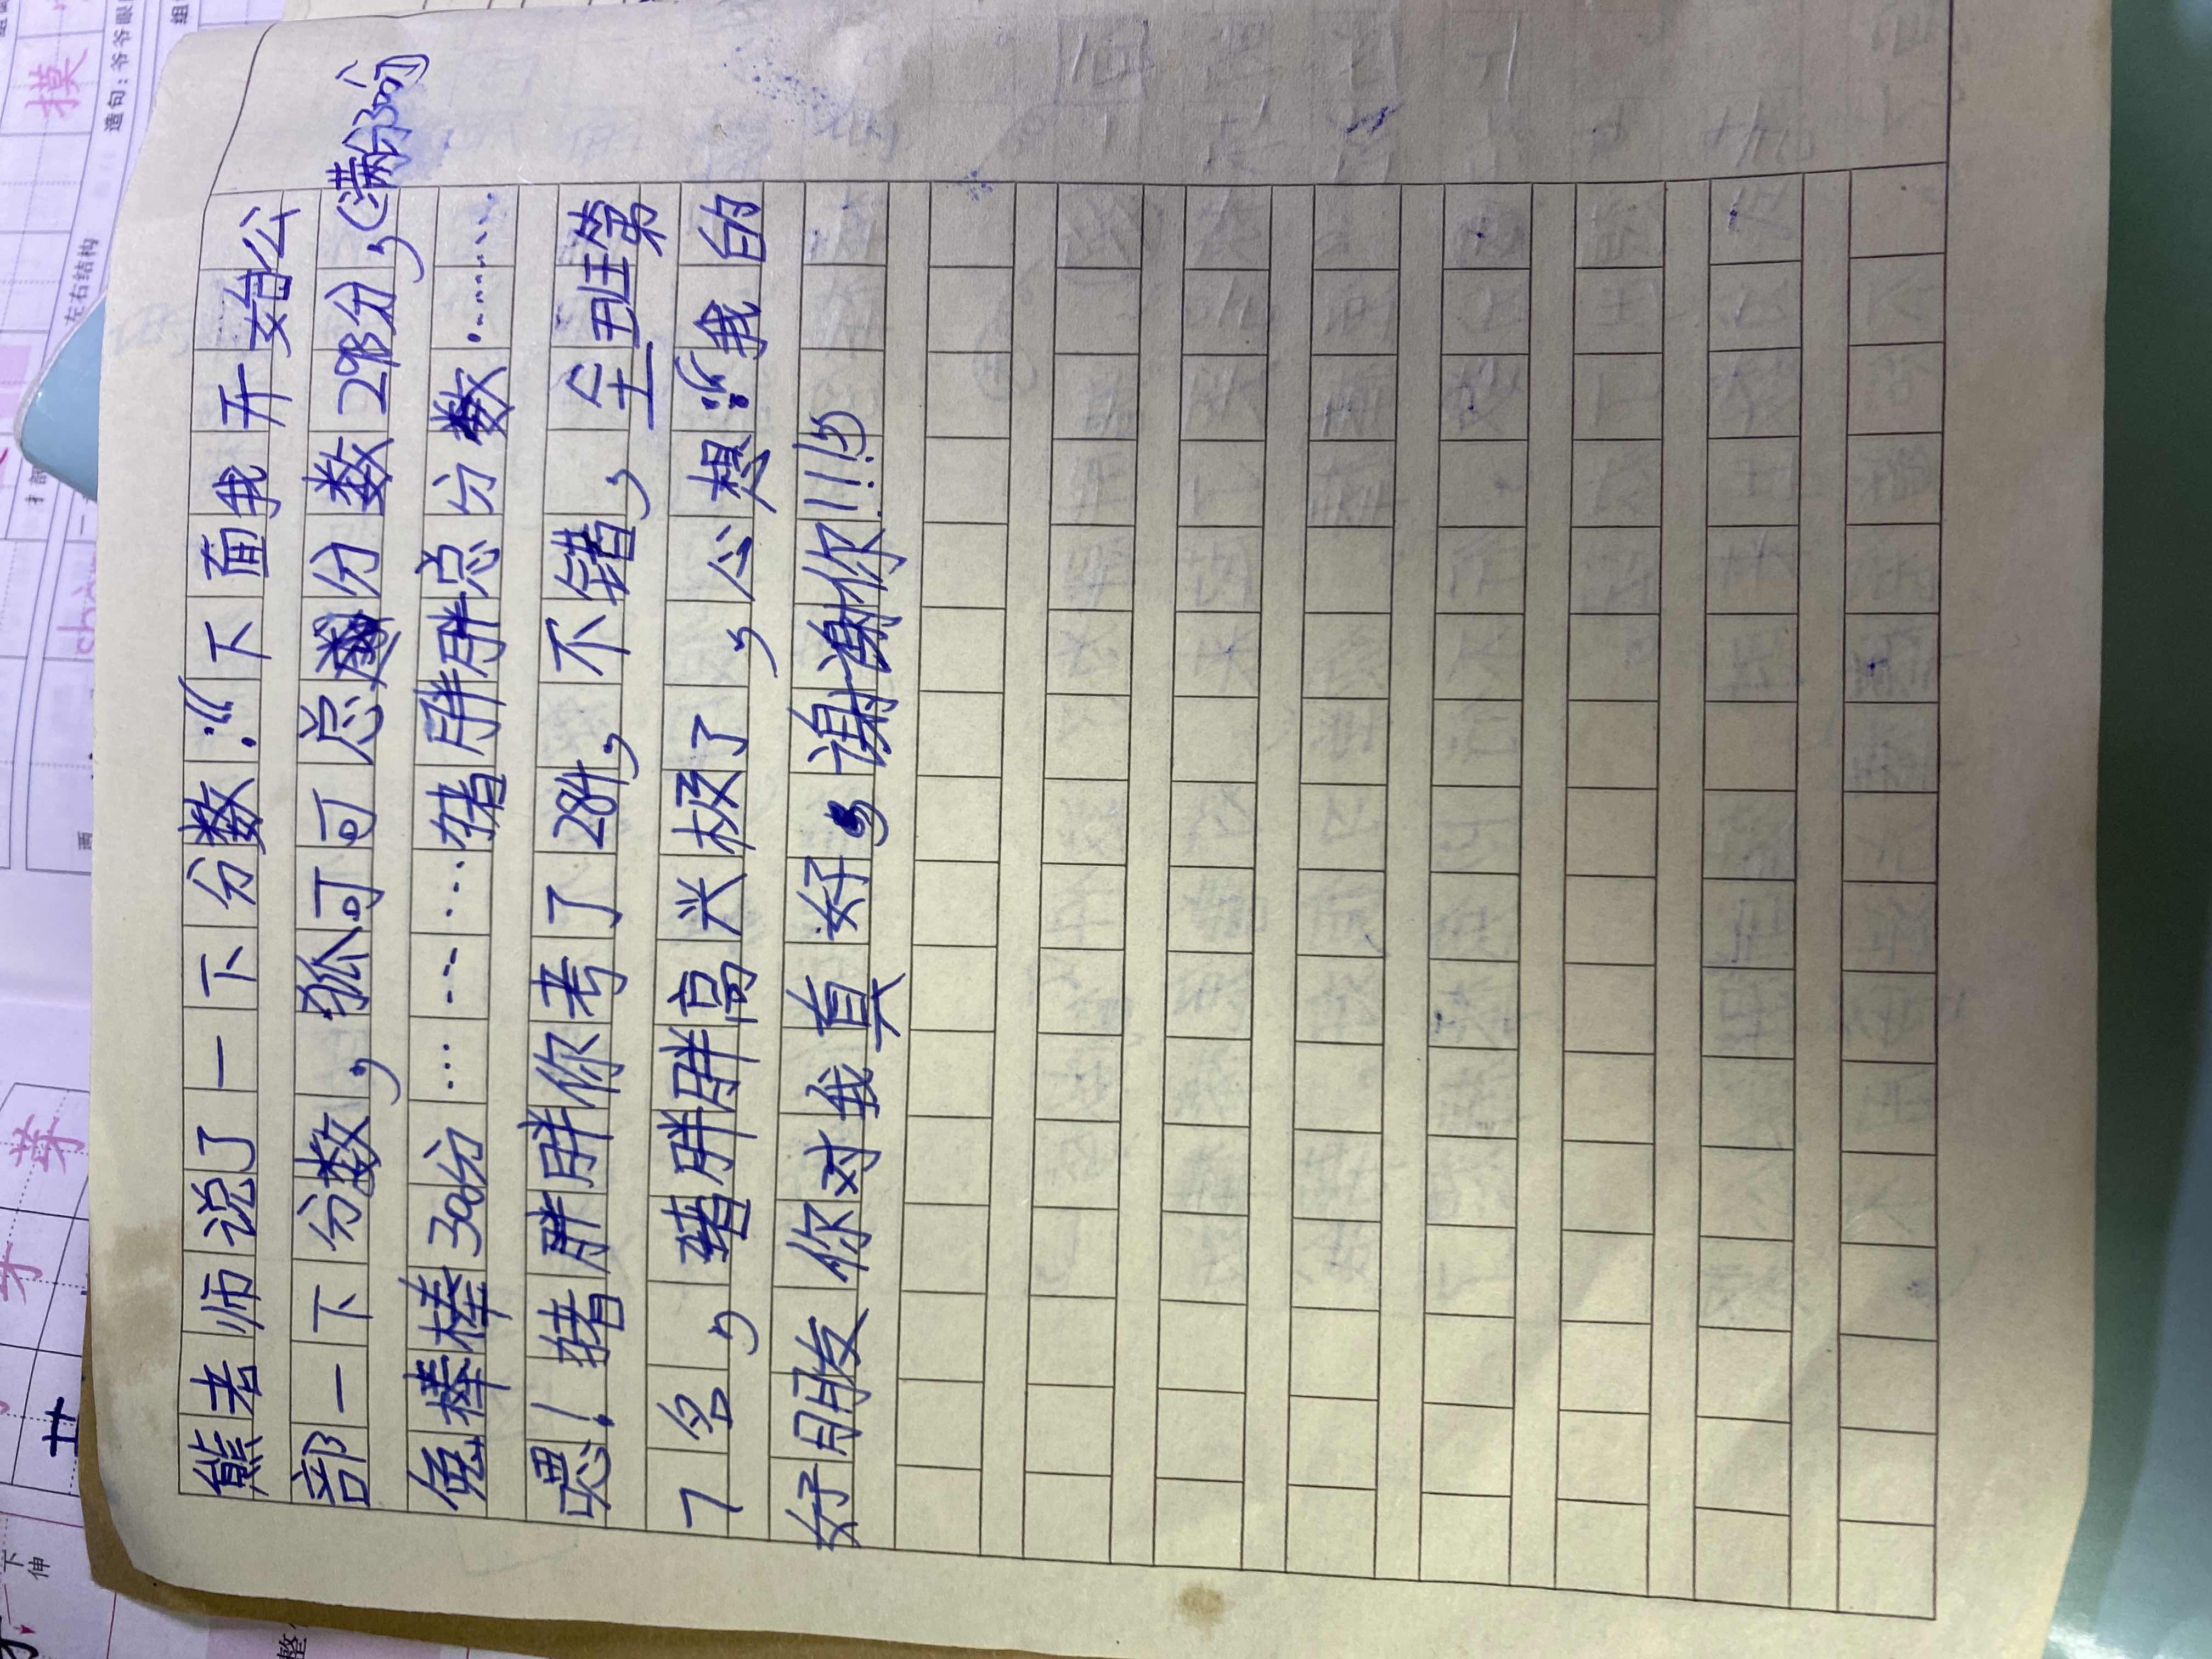 熊老师说了一下分数:“下面我开始公
部一下分数,狐可可总分数298分,(满分300)
兔棒棒300分………………猪胖胖总分数………
嗯!猪胖胖你考了284,不错,全班第
7名,猪胖胖高兴极了,心想:“我的
好朋友你对我真好,谢谢你!!!”
摸
造句:爷爷眼
左右结构
芽
下
伸